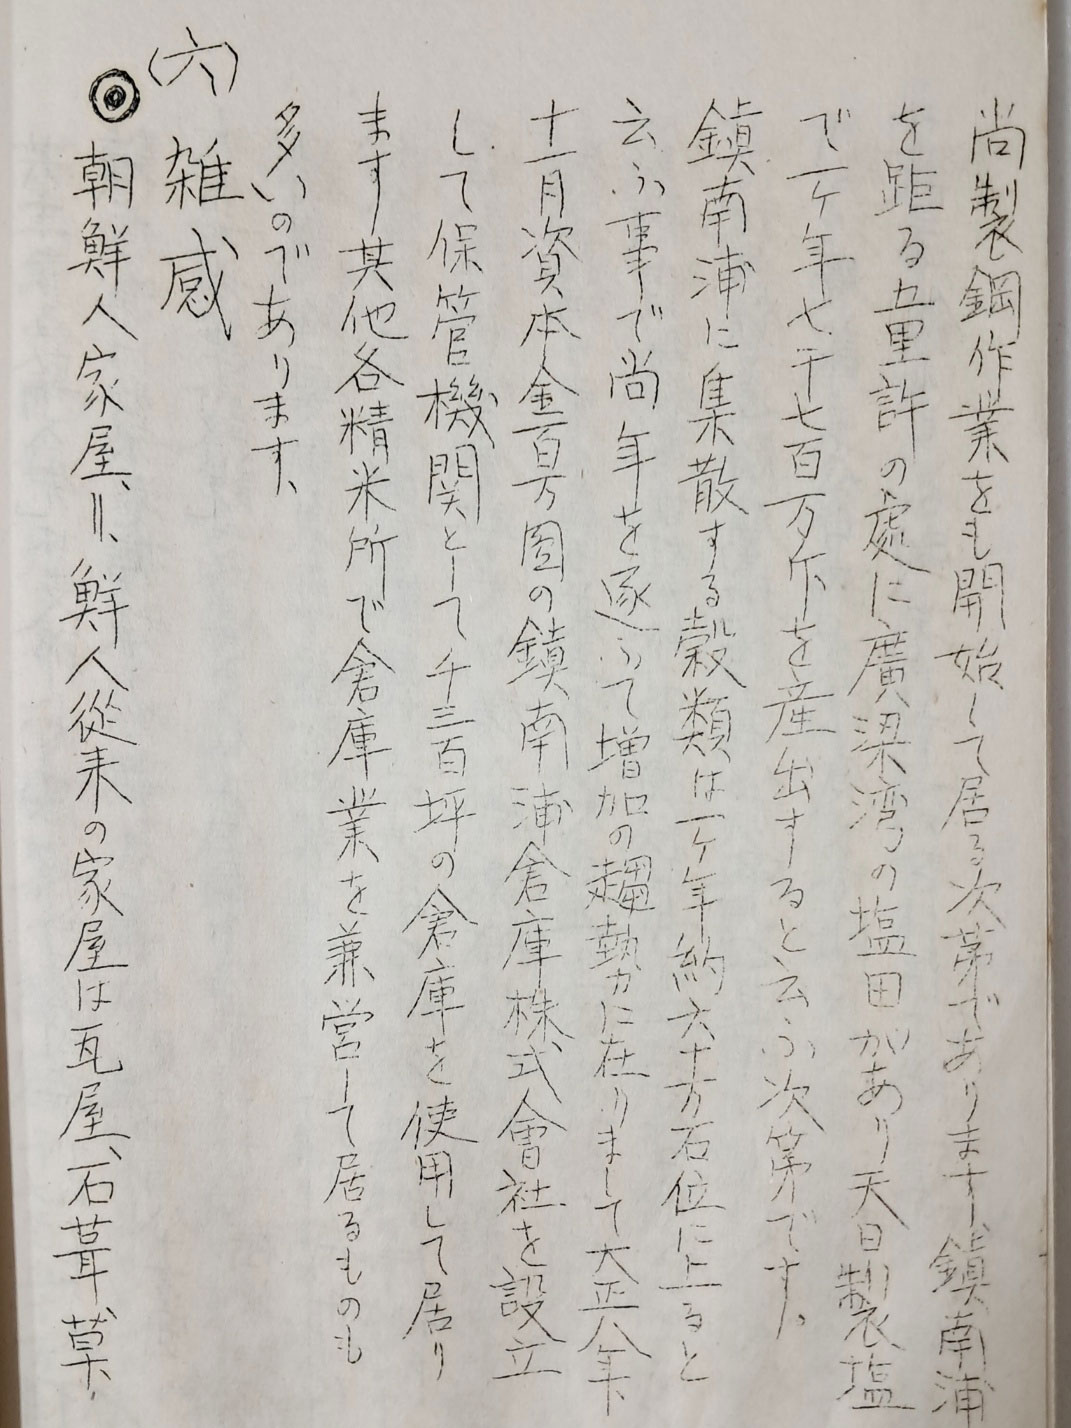 尚製鋼作業をも開始して居る次第であります、鎮南浦
を距る五里許の處に廣梁湾の塩田があり天日製塩
で一ヶ年七千七百万斤を産出すると云ふ次第です、
鎮南浦に集散する穀類は一ヶ年約六十万石位に上ると
云ふ事で尚年を逐ふて増加の趨勢に在りまして大正八年
十一月資本金百万圓の鎮南浦倉庫株式會社を設立
して保管機関として千三百坪の倉庫を使用して居り
ます其他各精米所で倉庫業を兼営して居るものも
多いのであります、
(六)雑感
◎朝鮮人家屋、＝、鮮人從来の家屋は瓦屋、石葺、草、